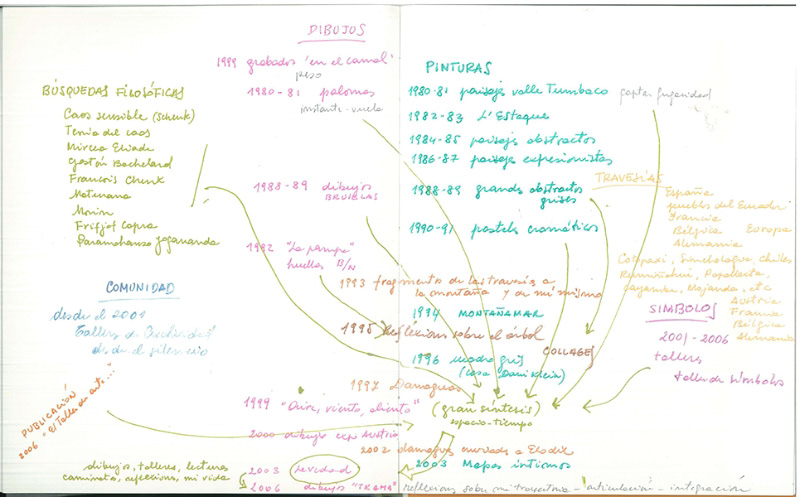 DIBUJOS
1999 grabados "en el camal"
peso
1980-81 palomas
instante-vuelo
BÚSQUEDAS FILOSÓFICAS
Caos sensible (Schenk)
Teoría del caos
Mircea Eliade
Gastón Bachelard
Francois Cheuk
Maturana
Morin
Fritjof Capra
Paramahansa Jogananda
1988-89 dibujos
BRUSELAS
1992 "La pampa"
huellas B/N
PINTURAS
1980-81 paisaje valle Tumbaco captar fugacidad
1982-83 L'Estaque
1984-85 paisaje abstractos
1986-87 paisaje expresionistas
1988-89 grands abstractos
grises
1990-91 pastels cromáticos
TRAVESÍAS
España
pueblos del Ecuador
Francia
Bélgica Europa
Alemania
Cotopaxi, Sincholagua, Chiles
Rumiñahui, Papallacta,
Cayambe, Mojanda, etc
Austria
Francia
Bélgica
Alemania
1993 fragmentos de las travesías a
la montaña y de mí misma
1994 MONTAÑAMAR
1995 Reflexions sobre el árbol
COLLAGES
1996 cuadro gris
(casa Dani Klein)
1997 Damaguas
1999 "Aire, viento, aliento" (gran síntesis)
espacio-tiempo
2000 dibujos Austria
2002 damaguas enviada a Elodie
2003 levedad 2003 Mapas íntimos
2006 dibujos reflexions sobre mi trayectoria - articulación - integración
COMUNIDAD
desde el 2001
Tallers de
desde el silencio
PUBLICACIÓN
2006 "El Taller de arte..."
dibujos, tallers, lecturas
caminata, reflexions, mi vida
SIMBOLOS
2001-2006
tallers
taller de símbolos